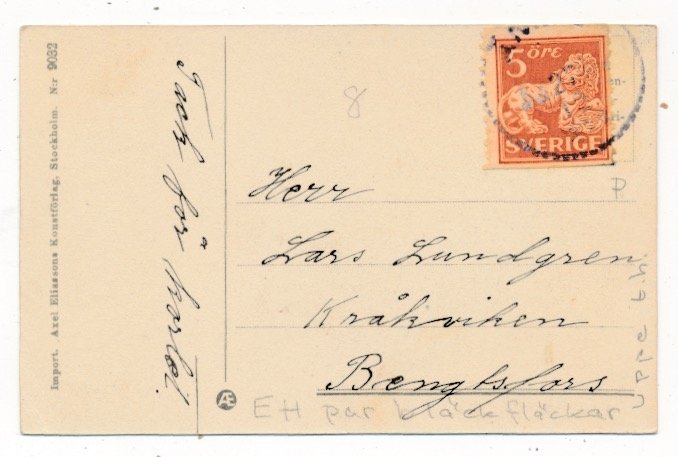 Import. Axel Eliassons Konstförlag, Stockholm. N:r 9032
Tack för kortet!
8
5 ÖRE
SVERIGE
Herr
P
Lars Lundgren
Kråkviken
Bengtsfors
Æ
Ett par bläckfläckar
uppe t.h.